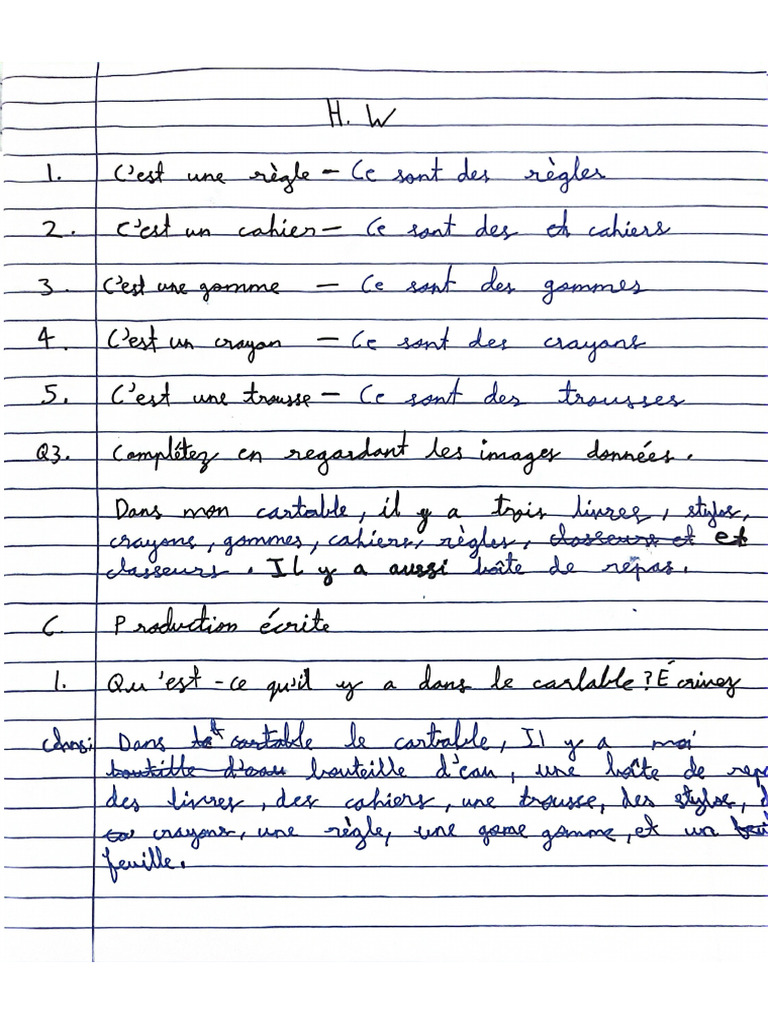 H. W
1. C'est une règle - Ce sont des règles
2. C'est un cahier - Ce sont des ch cahiers
3. C'est une gomme - Ce sont des gommes
4. C'est un crayon - Ce sont des crayons
5. C'est une trousse - Ce sont des trousses
Q3. Complétez en regardant les images données.
Dans mon cartable, il y a trois livres, stylos,
crayons, gommes, cahiers, règles, classeurs et et
classeurs. Il y a aussi boîte de repas.
C. Production écrite
1. Qu'est-ce qu'il y a dans le carlable? Écrivez
Dans cartable le cartable, Il y a moi
bouteille d'eau bouteille d'eau, une boîte de repa
des livres, des cahiers, une trousse, des stylos, d
crayons, une règle, une gome gomme, et un
feuille.